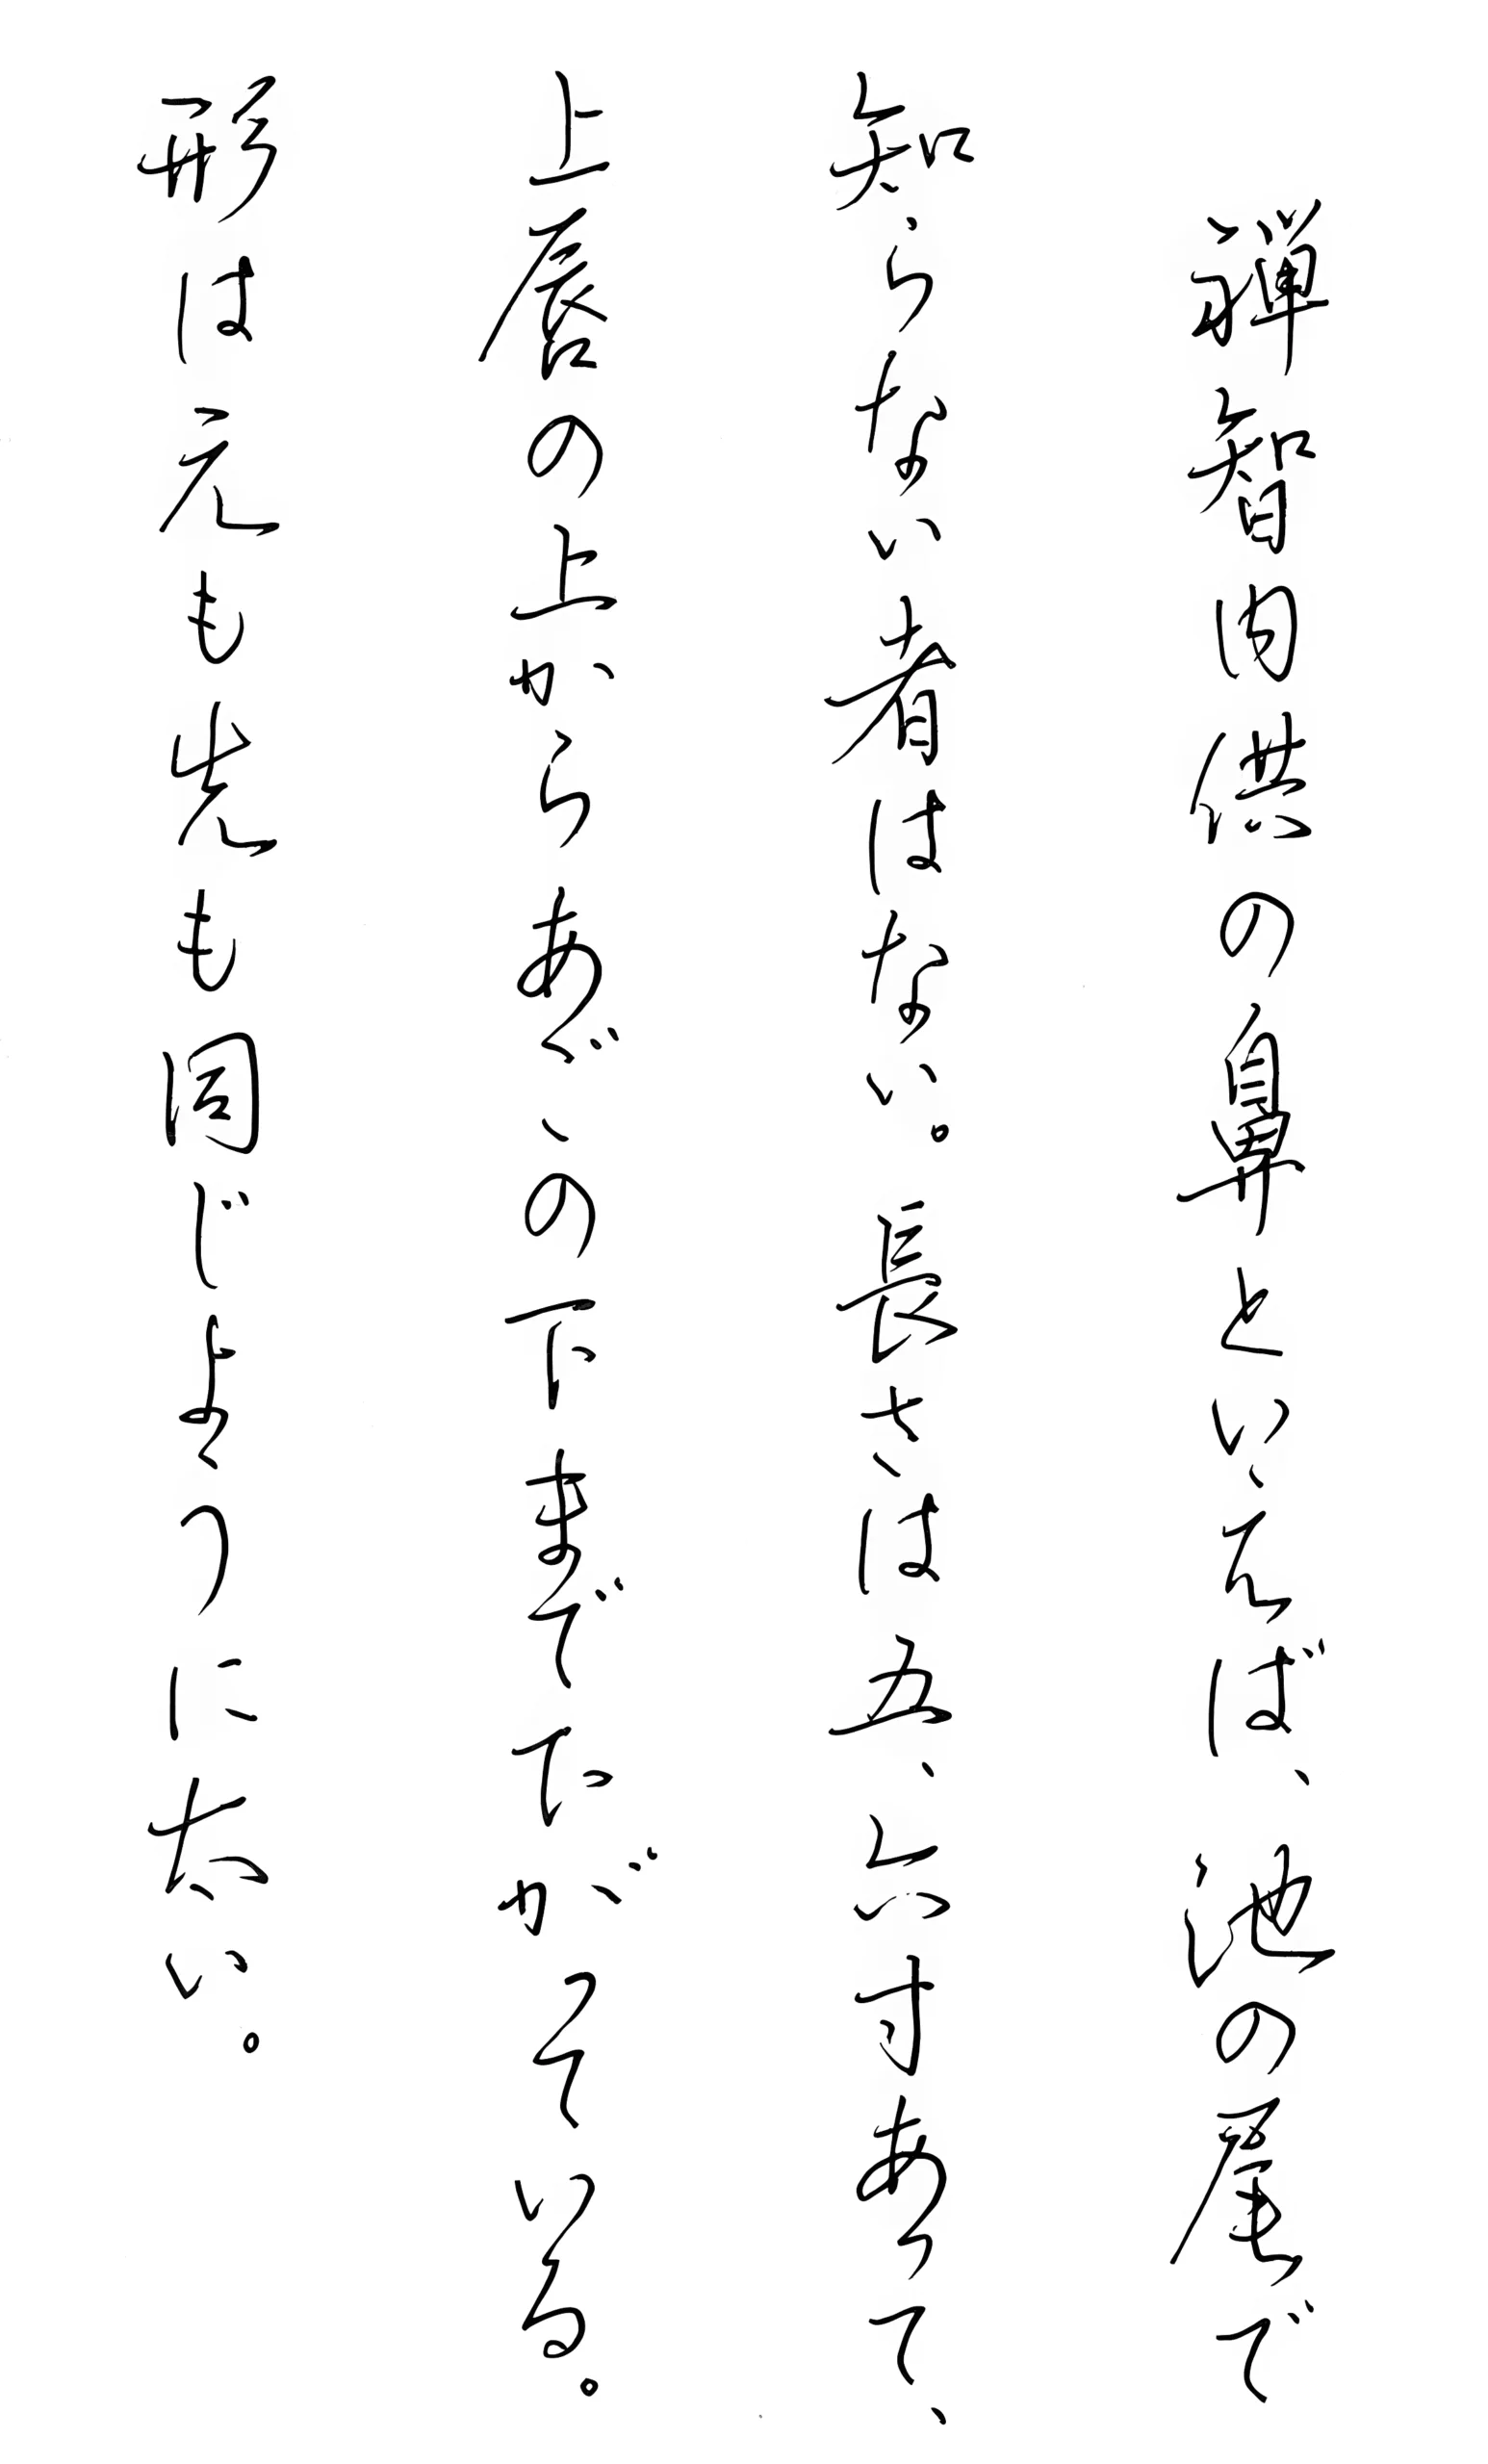 禅智内供の鼻といえば、池の尾で
知らない者はない。長さは五、六寸あって、
上唇の上からあごの下までたがっている。
形は元も先も同じように太い。